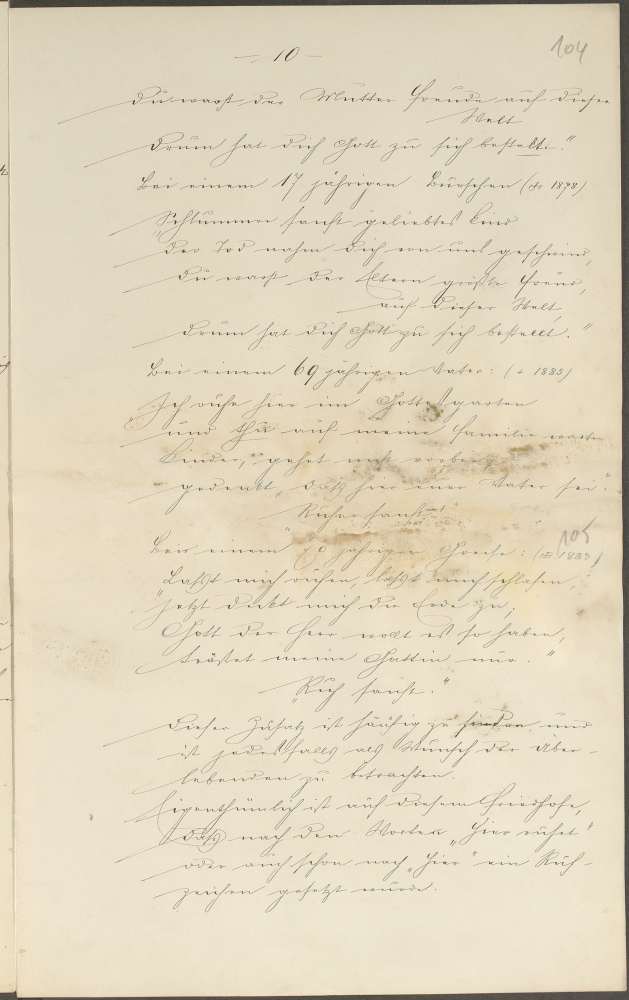 — 10 —
104
du warst der Mutter Freude auf dieser
Welt
drum hat dich Gott zu sich bestellt."
Bei einem 17 jährigen Burschen († 1878)
"Schlummre sanft geliebtes Kind
der Tod nahm dich von uns geschwind,
du warst der Eltern größte Freud,
auf dieser Welt,
drum hat dich Gott zu sich bestellt."
Bei einem 69 jährigen Vater: († 1885)
Ich ruhe hier im Gottesgarten
und thu auf meine Familie warten
Kinder, gehet nicht vorbei
gedenkt, daß hier euer Vater sei."
"Ruhe sanft"
105
Bei einem jährigen Greise: († 1883)
"Laßt mich ruhen, laßt mich schlafen,
jetzt deckt mich die Erde zu;
Gott der Herr wollt es so haben,
tröstet meine Gattin nur."
"Ruh sanft."
Dieser Zusatz ist häufig zu finden und
ist jedesfalls als Wunsch der Über-
lebenden zu betrachten.
Eigenthümlich ist auf diesem Friedhofe,
daß nach den Worten "Hier ruhet"
oder auch schon nach "Hier" ein Ruf-
zeichen gesetzt wurde.